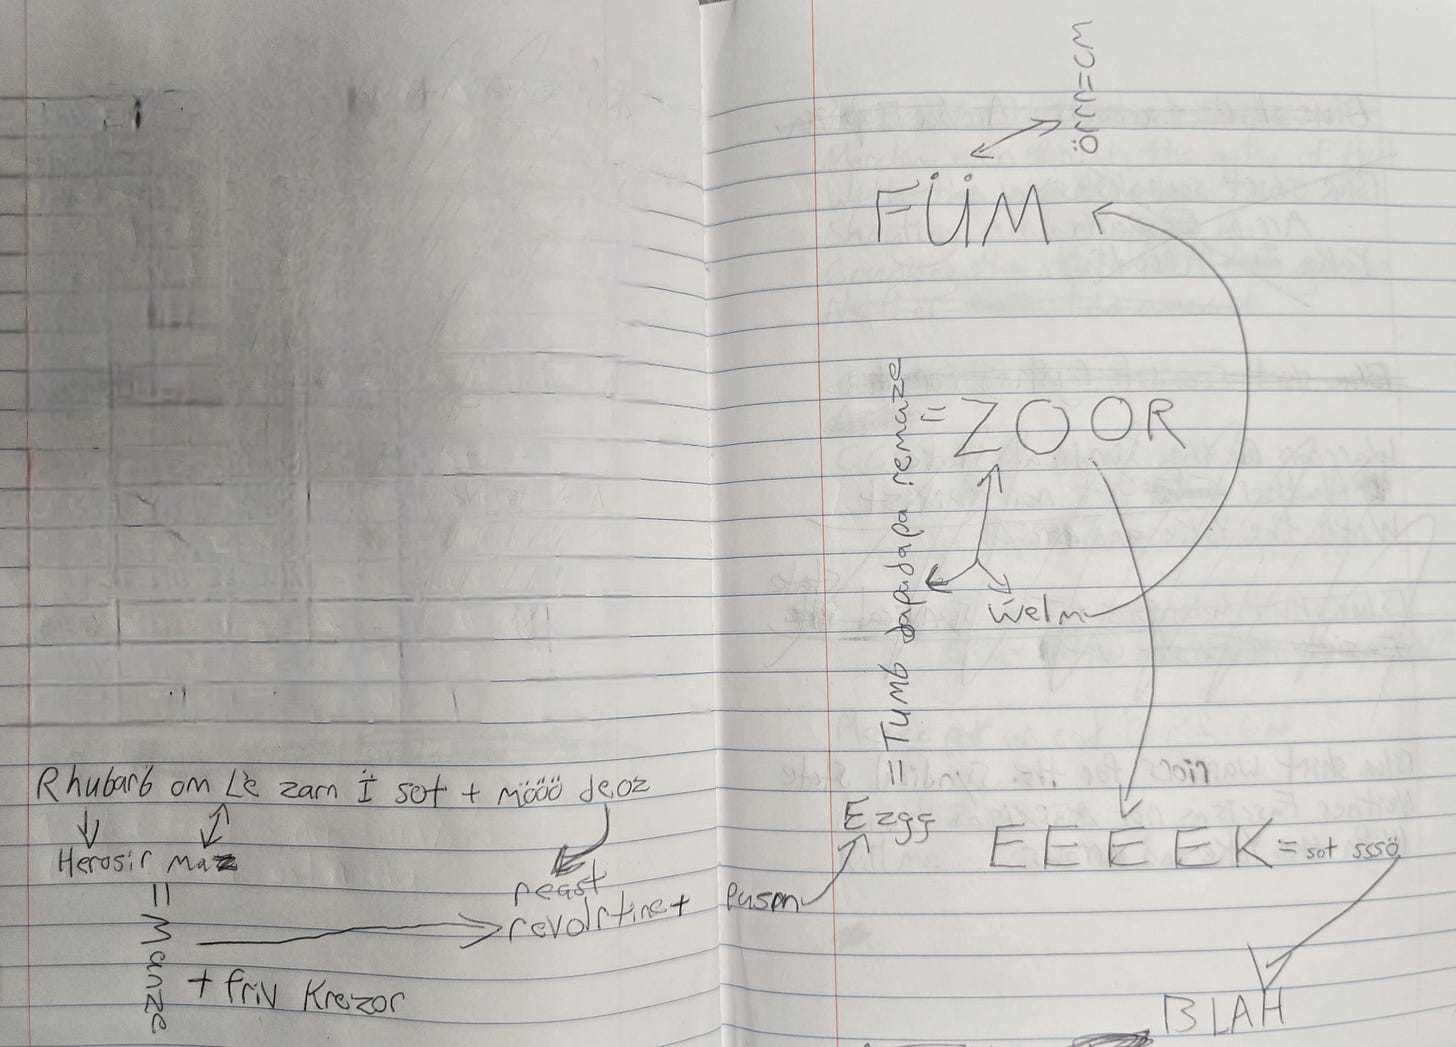 Rhubarb om Lè zam Ï sot + möööö deoz
Herosir maz
= Manze
+ friv Krezor
reast
revolrtine +
pusm
Ezgg
= Tumb dapadapa remaze =
ZOOR
welm
FÜM
örm=cm
EEEEK = sot sssö
BLAH